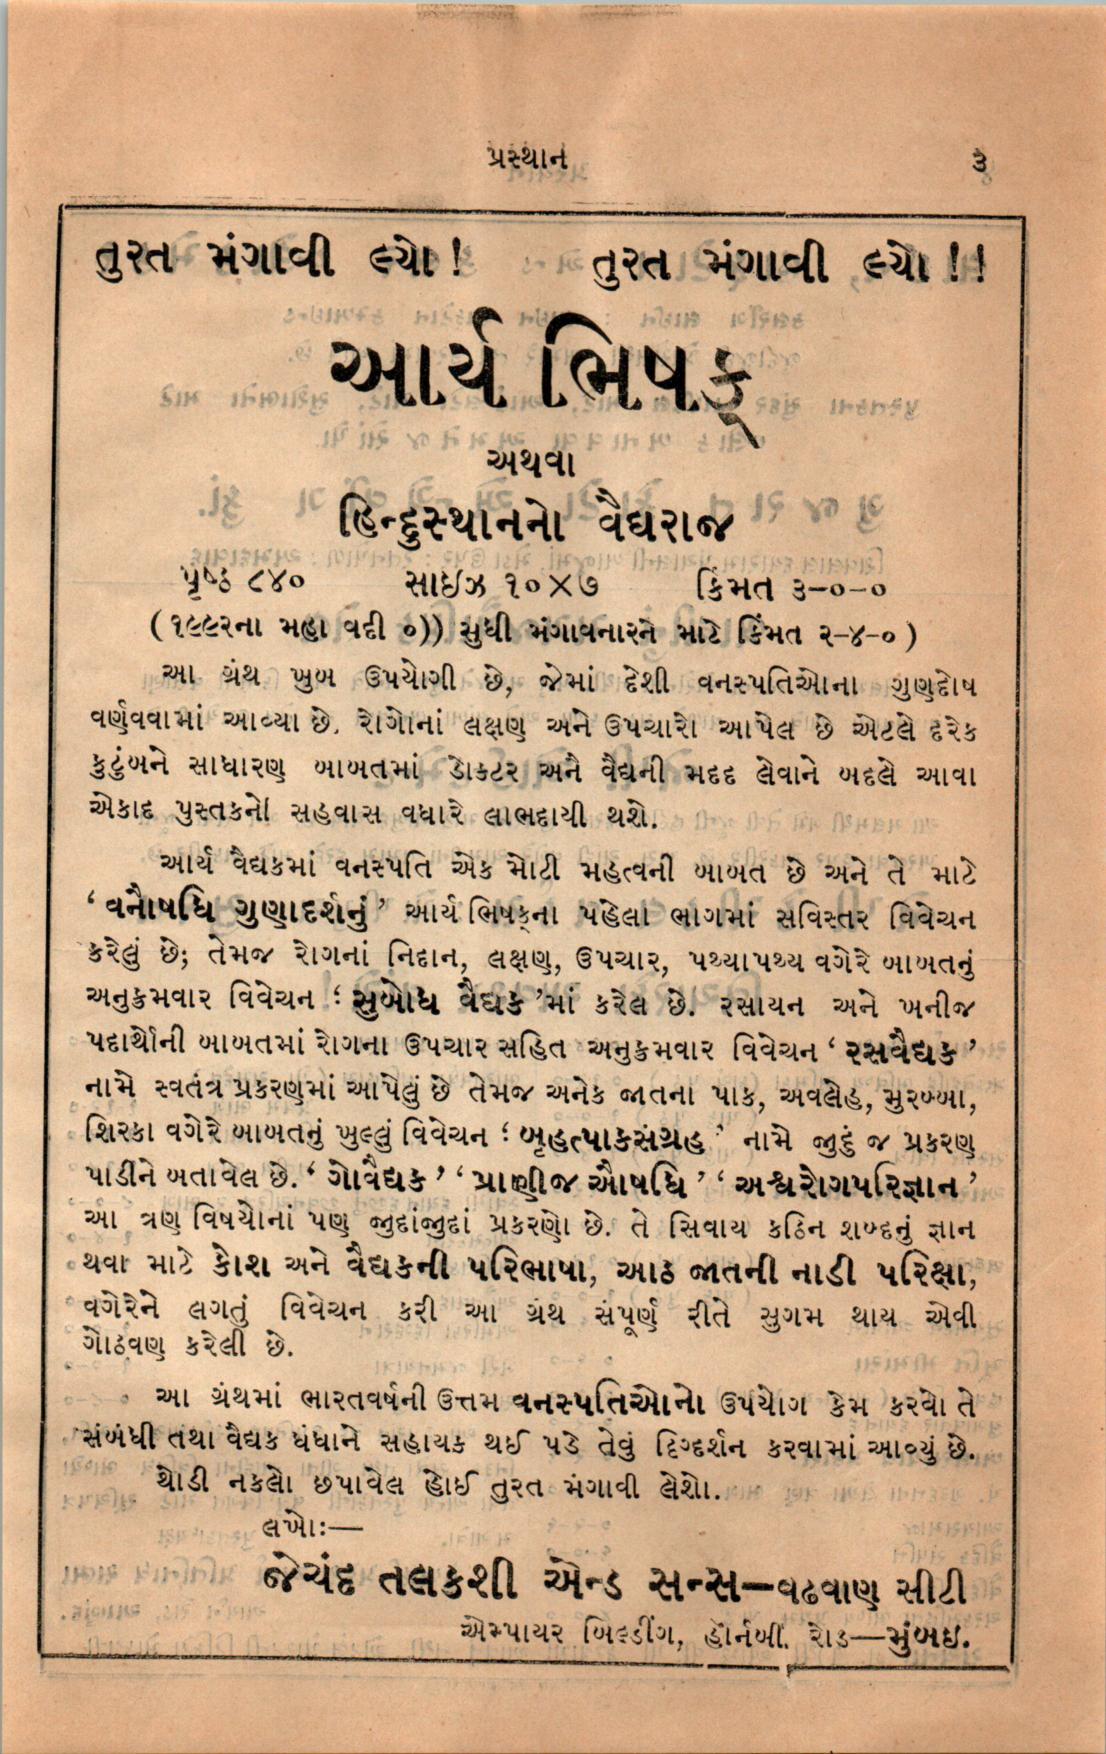 પ્રસ્થાન ૩
તુરત મંગાવી લ્યો ! તુરત મંગાવી લ્યો ! !
આર્ય ભિષક્
અથવા
હિન્દુસ્થાનનો વૈદ્યરાજ
પૃષ્ઠ ૮૪૦ સાઇઝ ૧૦×૭ કિંમત ૩-૦-૦
(૧૯૯૨ના મહા વદી ૦)) સુધી મંગાવનારને માટે કિંમત ૨-૪-૦ )
આ ગ્રંથ ખુબ ઉપયોગી છે, જેમાં દેશી વનસ્પતિઓના ગુણદોષ
વર્ણવવામાં આવ્યા છે. રોગોનાં લક્ષણ અને ઉપચારો આપેલ છે એટલે દરેક
કુટુંબને સાધારણ બાબતમાં ડોકટર અને વૈદ્યની મદદ લેવાને બદલે આવા
એકાદ પુસ્તકનો સહવાસ વધારે લાભદાયી થશે.
આર્ય વૈદ્યકમાં વનસ્પતિ એક મોટી મહત્વની બાબત છે અને તે માટે
‘ વનૌષધિ ગુણાદર્શનું ’ આર્ય ભિષક્‌ના પહેલા ભાગમાં સવિસ્તર વિવેચન
કરેલું છે; તેમજ રોગનાં નિદાન, લક્ષણ, ઉપચાર, પથ્યાપથ્ય વગેરે બાબતનું
અનુક્રમવાર વિવેચન ‘ સુબોધ વૈદ્યક ’માં કરેલ છે. રસાયન અને ખનીજ
પદાર્થોની બાબતમાં રોગના ઉપચાર સહિત અનુક્રમવાર વિવેચન ‘ રસવૈદ્યક ’
નામે સ્વતંત્ર પ્રકરણમાં આપેલું છે તેમજ અનેક જાતના પાક, અવલેહ, મુરબ્બા,
શિરકા વગેરે બાબતનું ખુલ્લું વિવેચન ‘ બૃહત્પાકસંગ્રહ ’ નામે જુદું જ પ્રકરણ
પાડીને બતાવેલ છે. ‘ ગોવૈદ્યક ’ ‘ પ્રાણીજ ઔષધિ ’ ‘ અશ્વરોગપરિજ્ઞાન ’
આ ત્રણ વિષયોનાં પણ જુદાંજુદાં પ્રકરણો છે. તે સિવાય કઠિન શબ્દનું જ્ઞાન
થવા માટે કોશ અને વૈદ્યકની પરિભાષા, આઠ જાતની નાડી પરિક્ષા,
વગેરેને લગતું વિવેચન કરી આ ગ્રંથ સંપૂર્ણ રીતે સુગમ થાય એવી
ગોઠવણ કરેલી છે.
આ ગ્રંથમાં ભારતવર્ષની ઉત્તમ વનસ્પતિઓનો ઉપયોગ કેમ કરવો તે
સંબંધી તથા વૈદ્યક ધંધાને સહાયક થઈ પડે તેવું દિગ્દર્શન કરવામાં આવ્યું છે.
થોડી નકલો છપાવેલ હોઈ તુરત મંગાવી લેશો.
લખોઃ—
જેચંદ તલકશી એન્ડ સન્સ—વઢવાણ સીટી
એમ્પાયર બિલ્ડીંગ, હોર્નબી. રોડ—મુંબઇ.